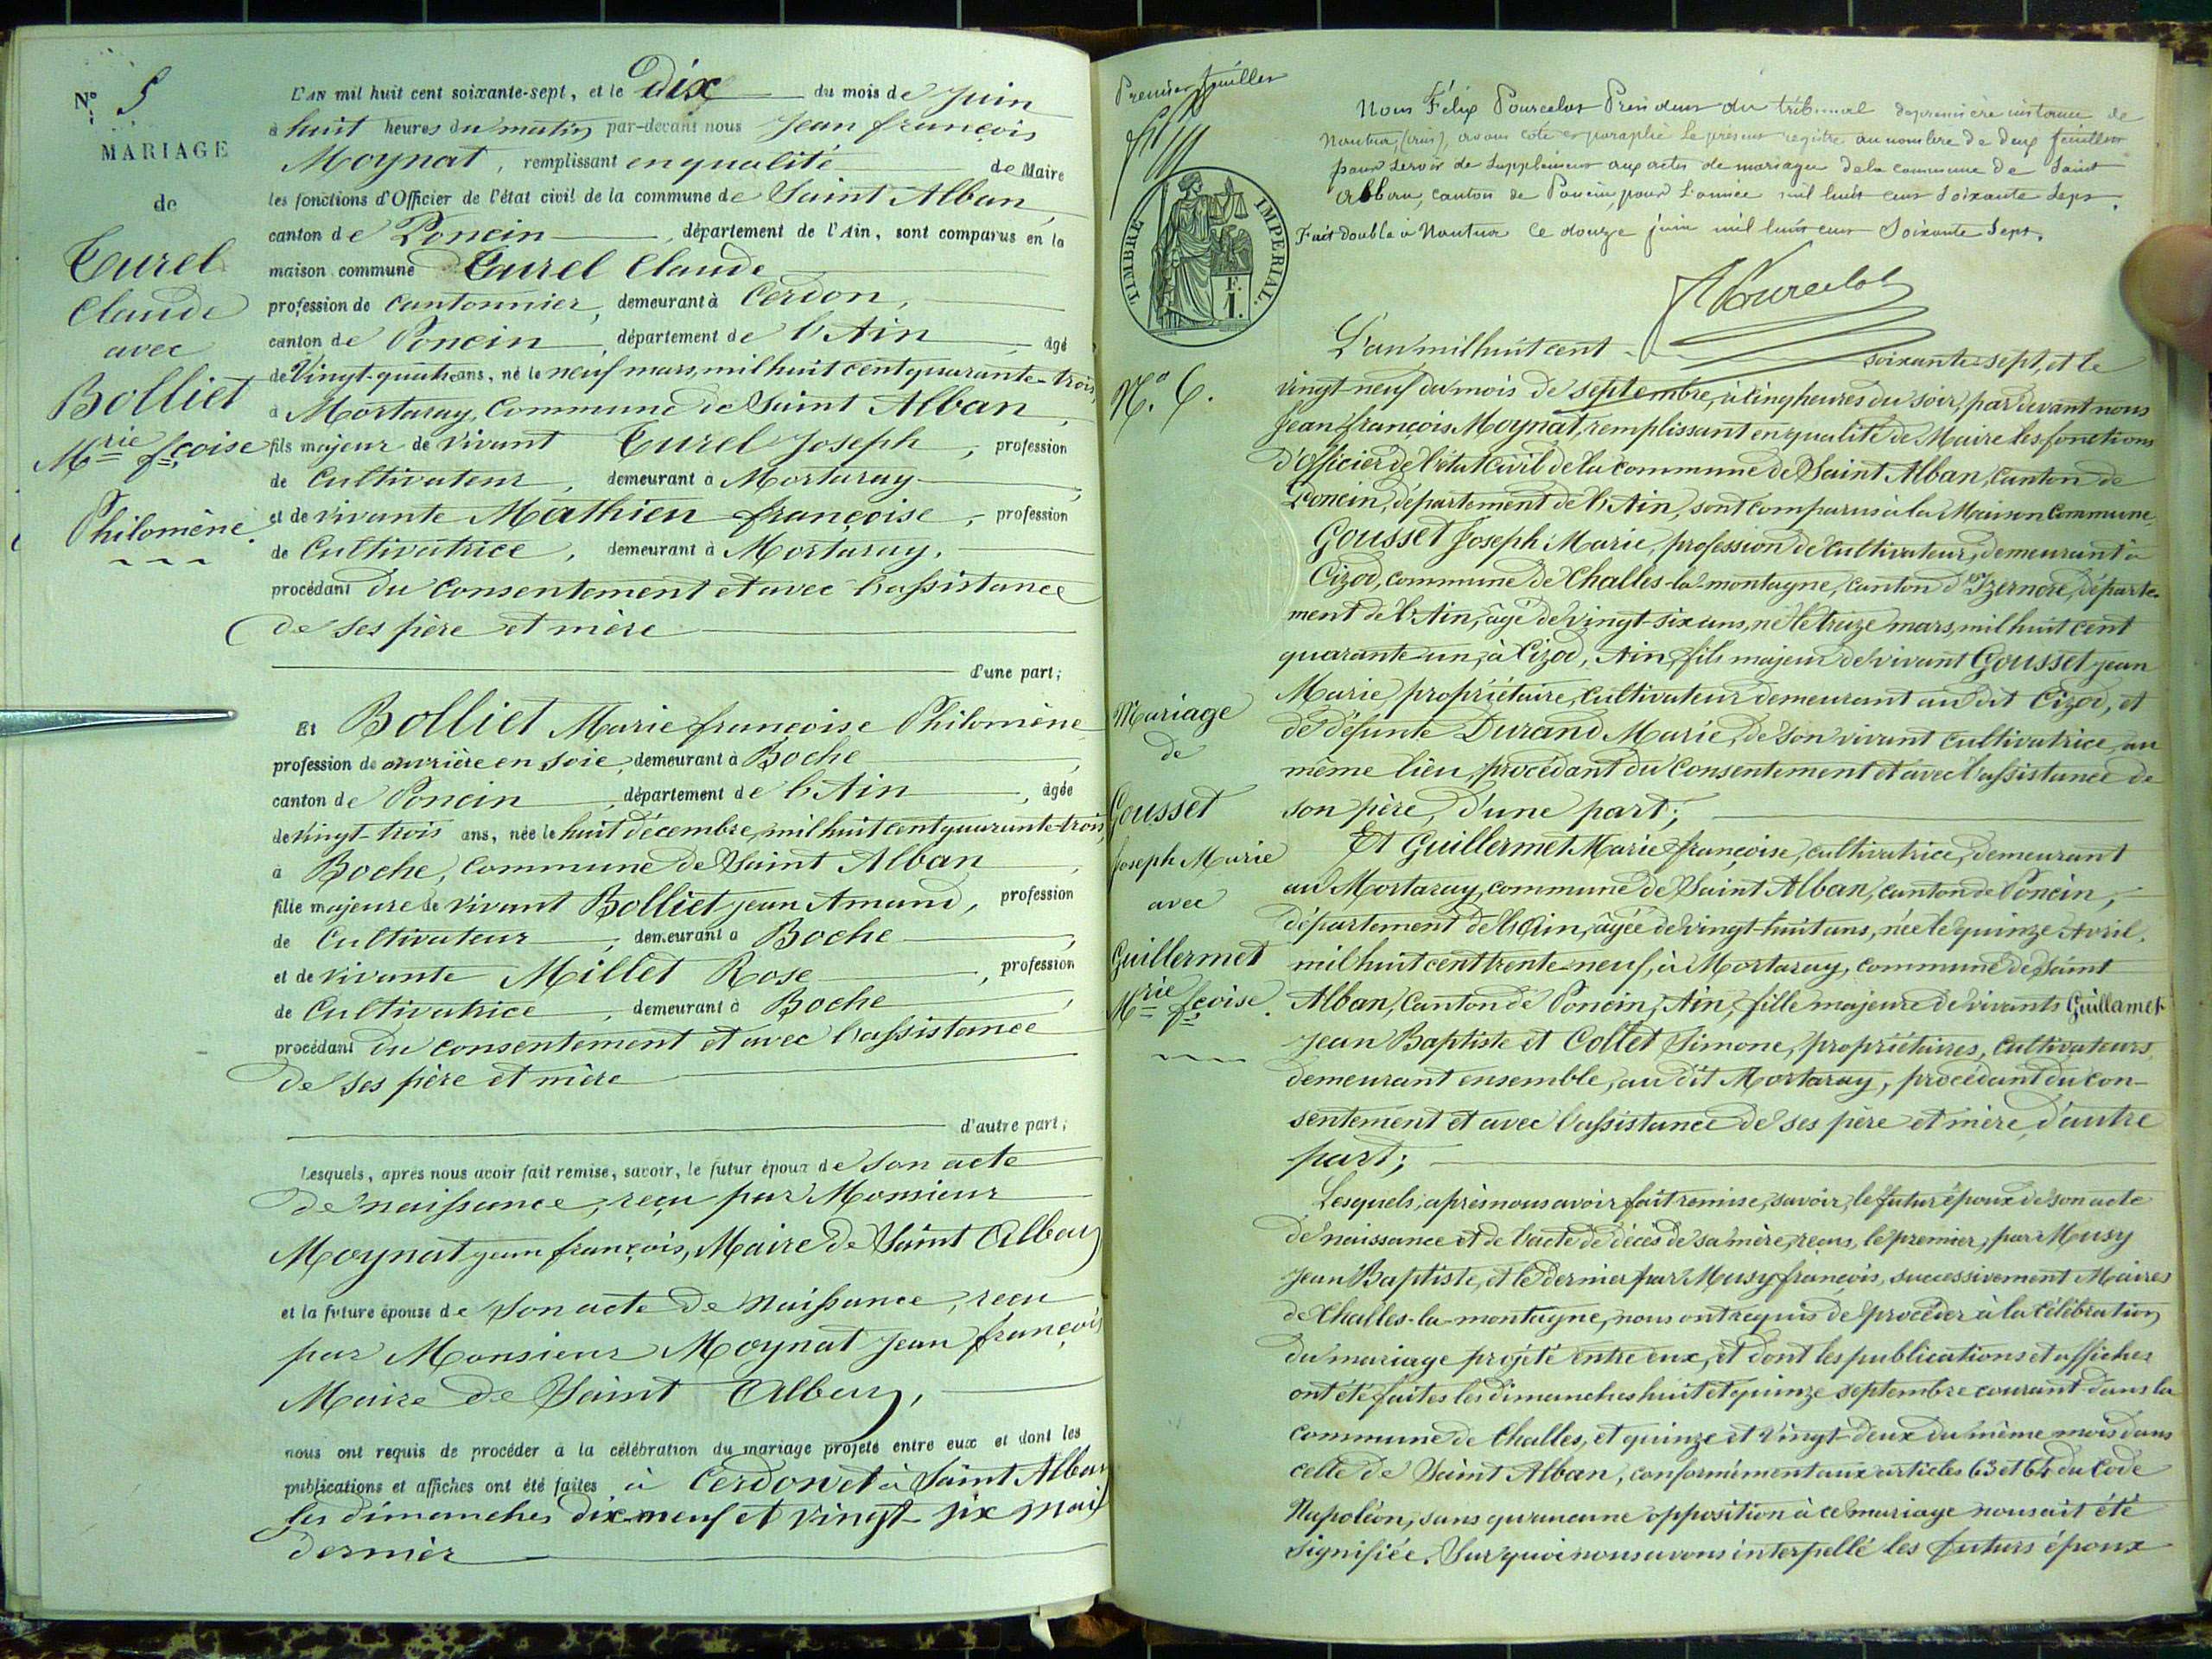 N° 5
MARIAGE
de
Turel
Claude
avec
Bolliet
Mrie fçoise
Philomène.
L'AN mil huit cent soixante-sept, et le Dix du mois de Juin
à huit heures du matin, par-devant nous Jean françois
Moynat, remplissant en qualité de Maire
les fonctions d'Officier de l'état civil de la commune de Saint Alban,
canton de Poncin, département de l'Ain, sont comparus en la
maison commune Turel Claude
profession de Cantonnier, demeurant à Cerdon,
canton de Poncin, département de l'Ain, âgé
de Vingt-quatre ans, né le neuf mars, mil huit cent quarante-trois,
à Mortaray, Commune de Saint Alban,
fils majeur de vivant Turel Joseph, profession
de Cultivateur, demeurant à Mortaray,
et de vivante Mathieu françoise, profession
de Cultivatrice, demeurant à Mortaray,
procédant du consentement et avec l'assistance
de ses père et mère
d'une part;
Et Bolliet Marie françoise Philomène
profession de ouvrière en soie, demeurant à Boche,
canton de Poncin, département de l'Ain, âgée
de vingt-trois ans, née le huit décembre, mil huit cent quarante-trois,
à Boche, Commune de Saint Alban,
fille majeure de vivant Bolliet jean Amand, profession
de Cultivateur, demeurant à Boche,
et de vivante Millet Rose, profession
de Cultivatrice, demeurant à Boche,
procédant du consentement et avec l'assistance
de ses père et mère
d'autre part;
Lesquels, après nous avoir fait remise, savoir, le futur époux de son acte
de naissance, reçu par Monsieur
Moynat jean françois, Maire de Saint Alban
et la future épouse de son acte de naissance, reçu
par Monsieur Moynat Jean françois
Maire de Saint Alban,
nous ont requis de procéder à la célébration du mariage projeté entre eux et dont les
publications et affiches ont été faites à Cerdon et à Saint Alban
les dimanches dix-neuf et vingt-six mai
dernier
Premier feuillet
TIMBRE IMPÉRIAL.
F.
1.
Nous Félix Pourcelot Président du tribunal de première instance de
Nantua, (Ain), avons coté et paraphé le présent registre au nombre de deux feuillets
pour servir de supplément aux actes de mariage de la commune de Saint
Alban, canton de Poncin, pour l'année mil huit cent soixante sept.
Fait double à Nantua le douze juin mil huit cent soixante sept.
F Pourcelot
N.° 6.
Mariage
de
Gousset
Joseph Marie
avec
Guillermet
Mrie fçoise.
L'an mil huit cent soixante-sept, et le
vingt-neuf du mois de septembre, à cinq heures du soir, par devant nous
Jean françois Moynat, remplissant en qualité de Maire les fonctions
d'officier de l'état civil de la commune de Saint Alban, Canton de
Poncin, département de l'Ain, sont comparus à la Maison Commune,
Gousset Joseph Marie, profession de Cultivateur, demeurant à
Cizod, commune de Challes-la-montagne, Canton d'Izernore, départe-
ment de l'Ain, âgé de vingt-six ans, né le treize mars, mil huit cent
quarante-un, à Cizod, Ain, fils majeur de vivant Gousset jean
Marie, propriétaire, cultivateur demeurant au dit Cizod, et
de défunte Durand Marie, de son vivant cultivatrice, au
même lieu, procédant du consentement et avec l'assistance de
son père, d'une part;
Et Guillermet Marie françoise, cultivatrice, demeurant
au Mortaray, commune de Saint Alban, canton de Poncin,
département de l'Ain, âgée de vingt-huit ans, née le quinze Avril.
mil huit cent trente-neuf, à Mortaray, commune de Saint
Alban, Canton de Poncin, Ain, fille majeure de vivants Guillamet
Jean Baptiste et Collet Simone, propriétaires, Cultivateurs,
demeurant ensemble, au dit Mortaray, procédant du con-
sentement et avec l'assistance de ses père et mère, d'autre
part;
Lesquels, après nous avoir fait remise, savoir, le futur époux de son acte
de naissance et de l'acte de décès de sa mère, reçus, le premier, par Musy
Jean Baptiste, et le dernier par Musy françois, successivement Maires
de Challes-la-montagne, nous ont requis de procéder à la célébration
du mariage projeté entre eux, et dont les publications et affiches
ont été faites les dimanches huit et quinze septembre courant dans la
commune de Challes, et quinze et Vingt-deux du même mois dans
celle de Saint Alban, conformément aux articles 63 et 64 du Code
Napoléon, sans qu'aucune opposition à ce mariage nous ait été
signifiée. Sur quoi nous avons interpellé les futurs époux